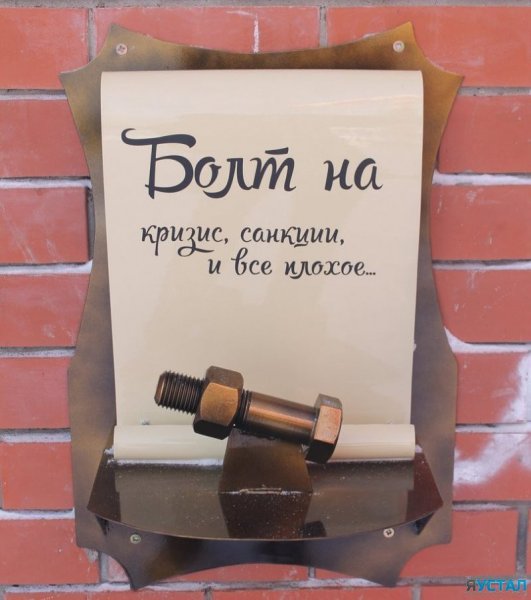 Болт на
кризис, санкции,
и все плохое...
ЯУСТАЛ